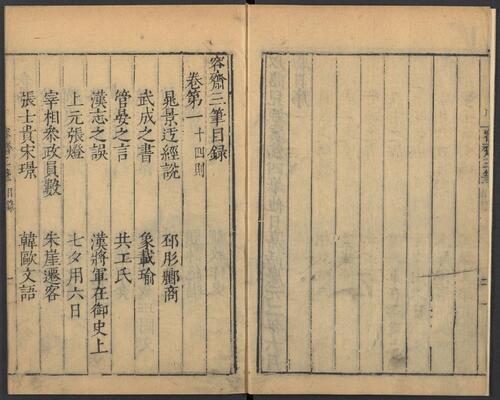 容齋三筆目錄
卷第一 十四則
晁景迂經說
邳彤酈商
武成之書
象載瑜
管晏之言
共工氏
漢志之誤
漢將軍在御史上
上元張燈
七夕用六日
宰相參政員數
朱崖遷客
張士貴宋璟
韓歐文語